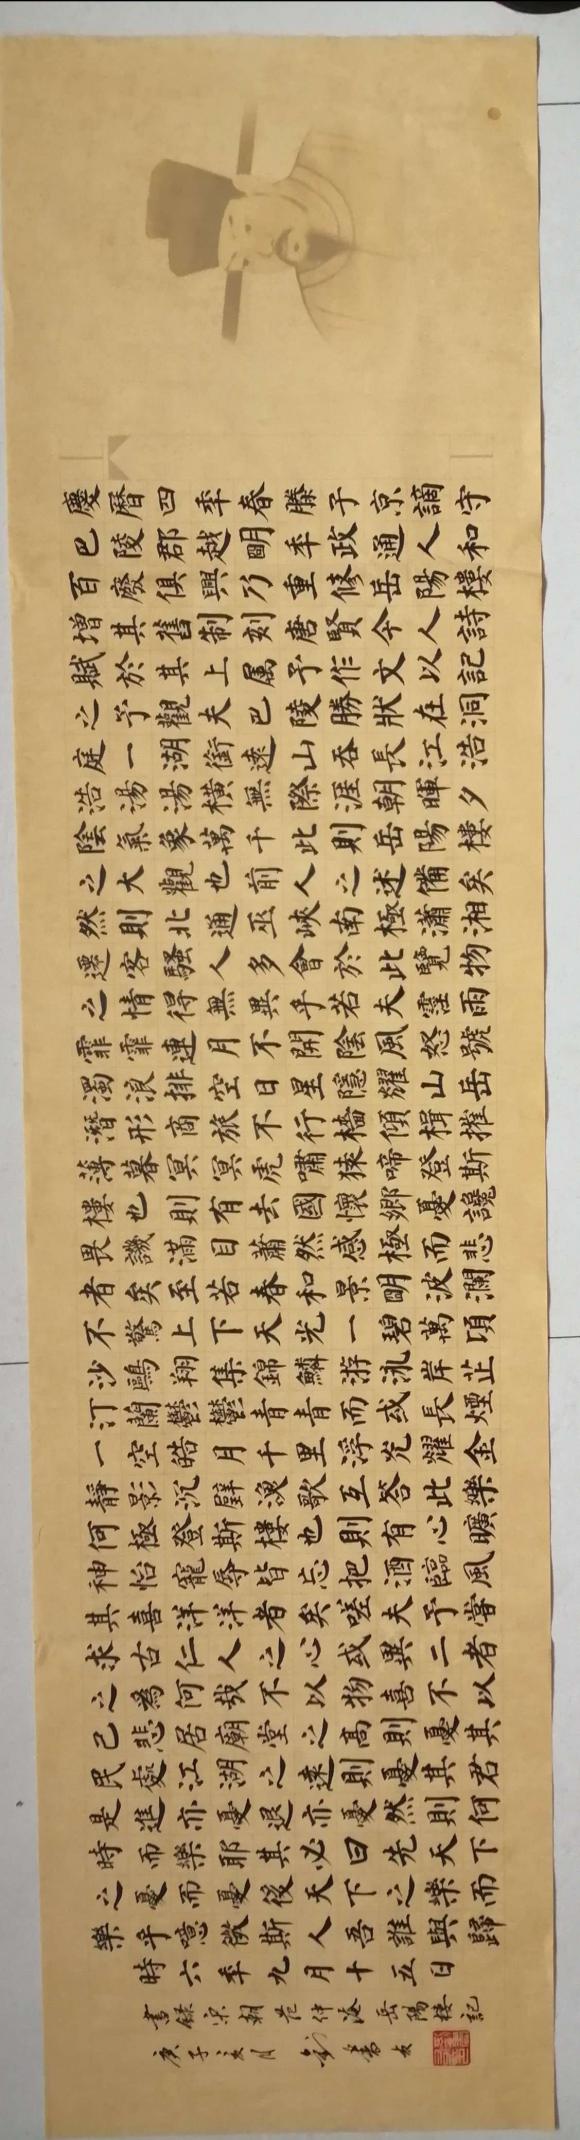 慶曆四年春滕子京謫守
巴陵郡越明年政通人和
百廢俱興乃重修岳陽樓
增其舊制刻唐賢今人詩
賦於其上属予作文以記
之予觀夫巴陵勝狀在洞
庭一湖銜遠山吞長江浩
浩湯湯橫無際涯朝暉夕
陰氣象萬千此則岳陽樓
之大觀也前人之述備矣
然則北通巫峽南極瀟湘
遷客騷人多會於此覽物
之情得無異乎若夫霪雨
霏霏連月不開陰風怒號
濁浪排空日星隱耀山岳
潛形商旅不行檣傾楫摧
薄暮冥冥虎嘯猿啼登斯
樓也則有去國懷鄉憂讒
畏譏滿目蕭然感極而悲
者矣至若春和景明波瀾
不驚上下天光一碧萬頃
沙鷗翔集錦鱗游泳岸芷
汀蘭鬱鬱青青而或長煙
一空皓月千里浮光耀金
靜影沉璧漁歌互答此樂
何極登斯樓也則有心曠
神怡寵辱皆忘把酒臨風
其喜洋洋者矣嗟夫予嘗
求古仁人之心或異二者
之為何哉不以物喜不以
己悲居廟堂之高則憂其
民處江湖之遠則憂其君
是進亦憂退亦憂然則何
時而樂耶其必曰先天下
之憂而憂後天下之樂而
樂乎噫微斯人吾誰與歸
時六年九月十五日
書錄宋朝范仲淹岳陽樓記
庚子 月